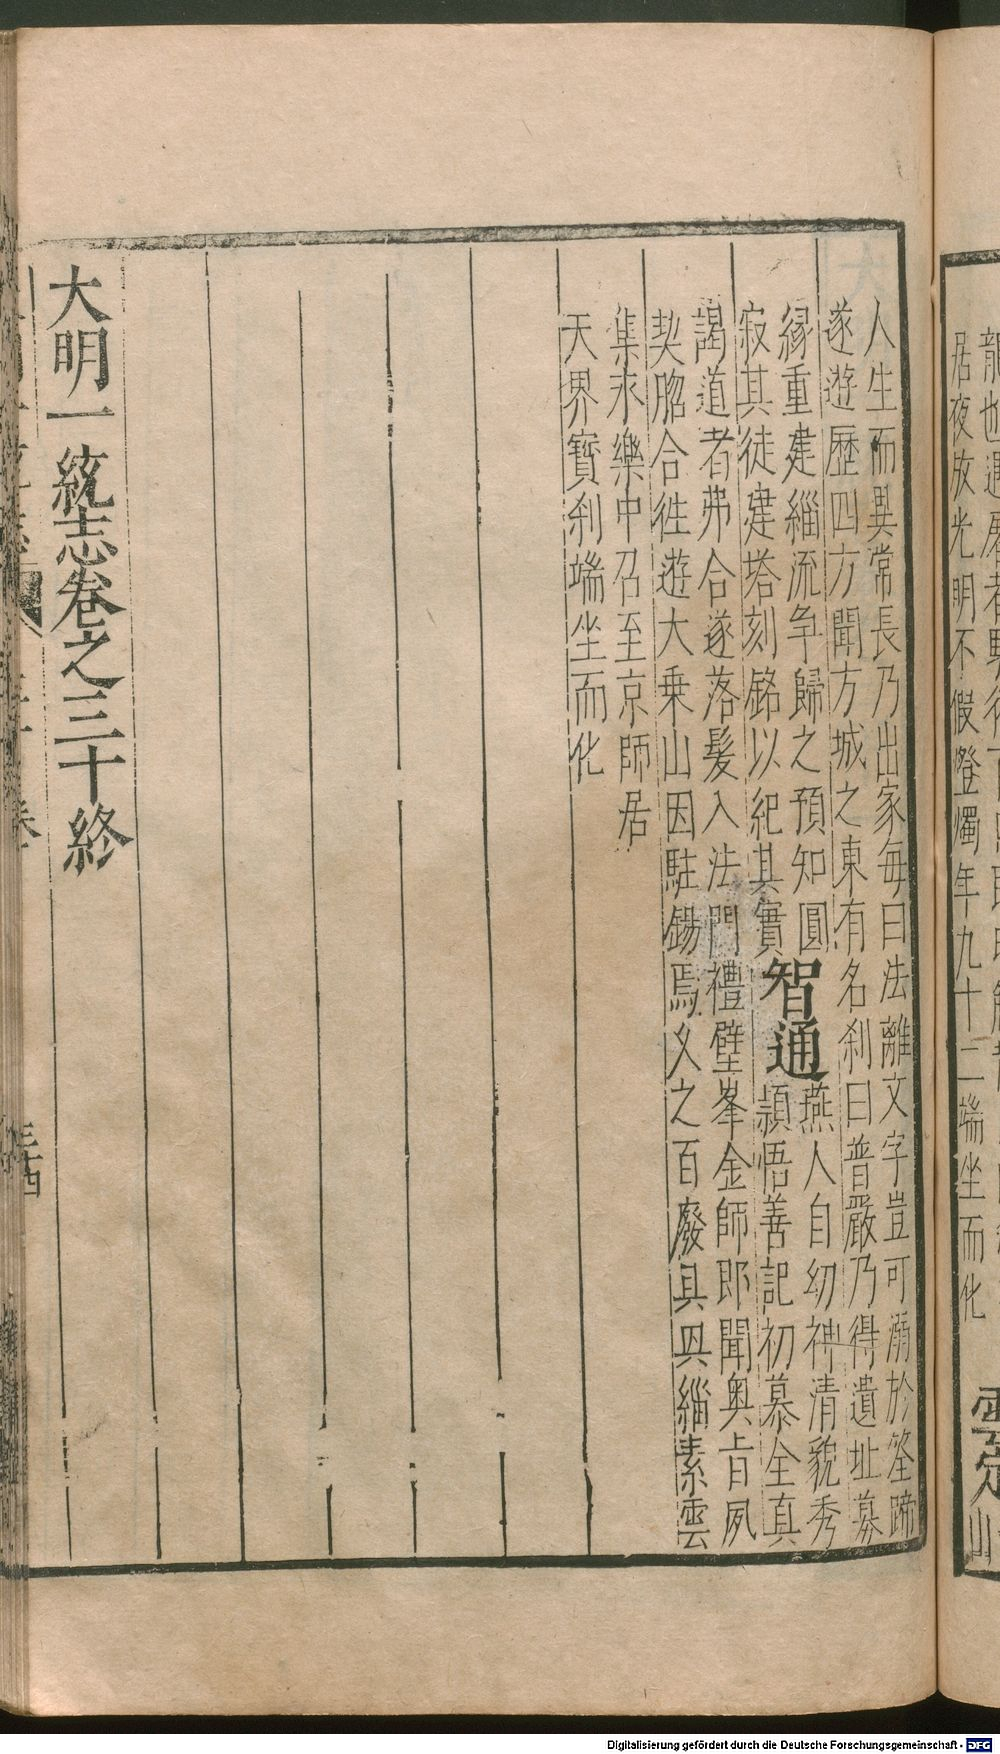 居夜放光明不假燈燭年九十二端坐而化
人生而異常長乃出家每曰法離文字豈可溺於筌蹄
遂遊歷四方聞方城之東有名刹曰普嚴乃得遺址募
緣重建緇流争歸之預知圓
寂其徒建塔刻銘以紀其實
智通
燕人自幼神清貌秀
頴悟善記初慕全真
謁道者弗合遂落髮入法門禮壁峯金師即聞奥旨夙
契脗合徃遊大乗山因駐錫焉乆之百廢具興緇素雲
集永樂中召至京師居
天界寳刹端坐而化
大明一統志卷之三十終
Digitalisierung gefördert durch die Deutsche Forschungsgemeinschaft - DFG